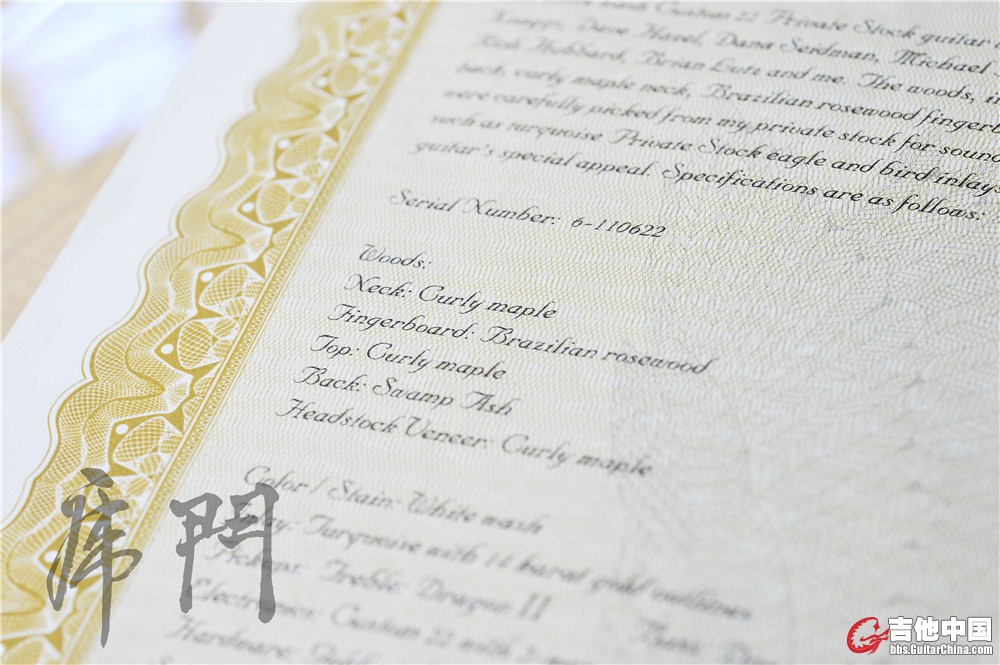 Custom 22 Private Stock guitar
Dave Hazel, Dana Seidman, Michael
Rich Hubbard, Brian Lutz and me. The woods,
back, curly maple neck, Brazilian rosewood
were carefully picked from my private stock for sound
such as turquoise Private Stock eagle and bird inlays
guitar's special appeal. Specifications are as follows:
Serial Number: 6-110622
Woods:
Neck: Curly maple
Fingerboard: Brazilian rosewood
Top: Curly maple
Back: Swamp Ash
Headstock Veneer: Curly maple
Color / Stain: White wash
Turquoise with 14 karat gold outlines
Pickups: Treble: Dragon II
Electronics: Custom 22 with
Hardware:
席門
吉他中国
bbs.GuitarChina.com